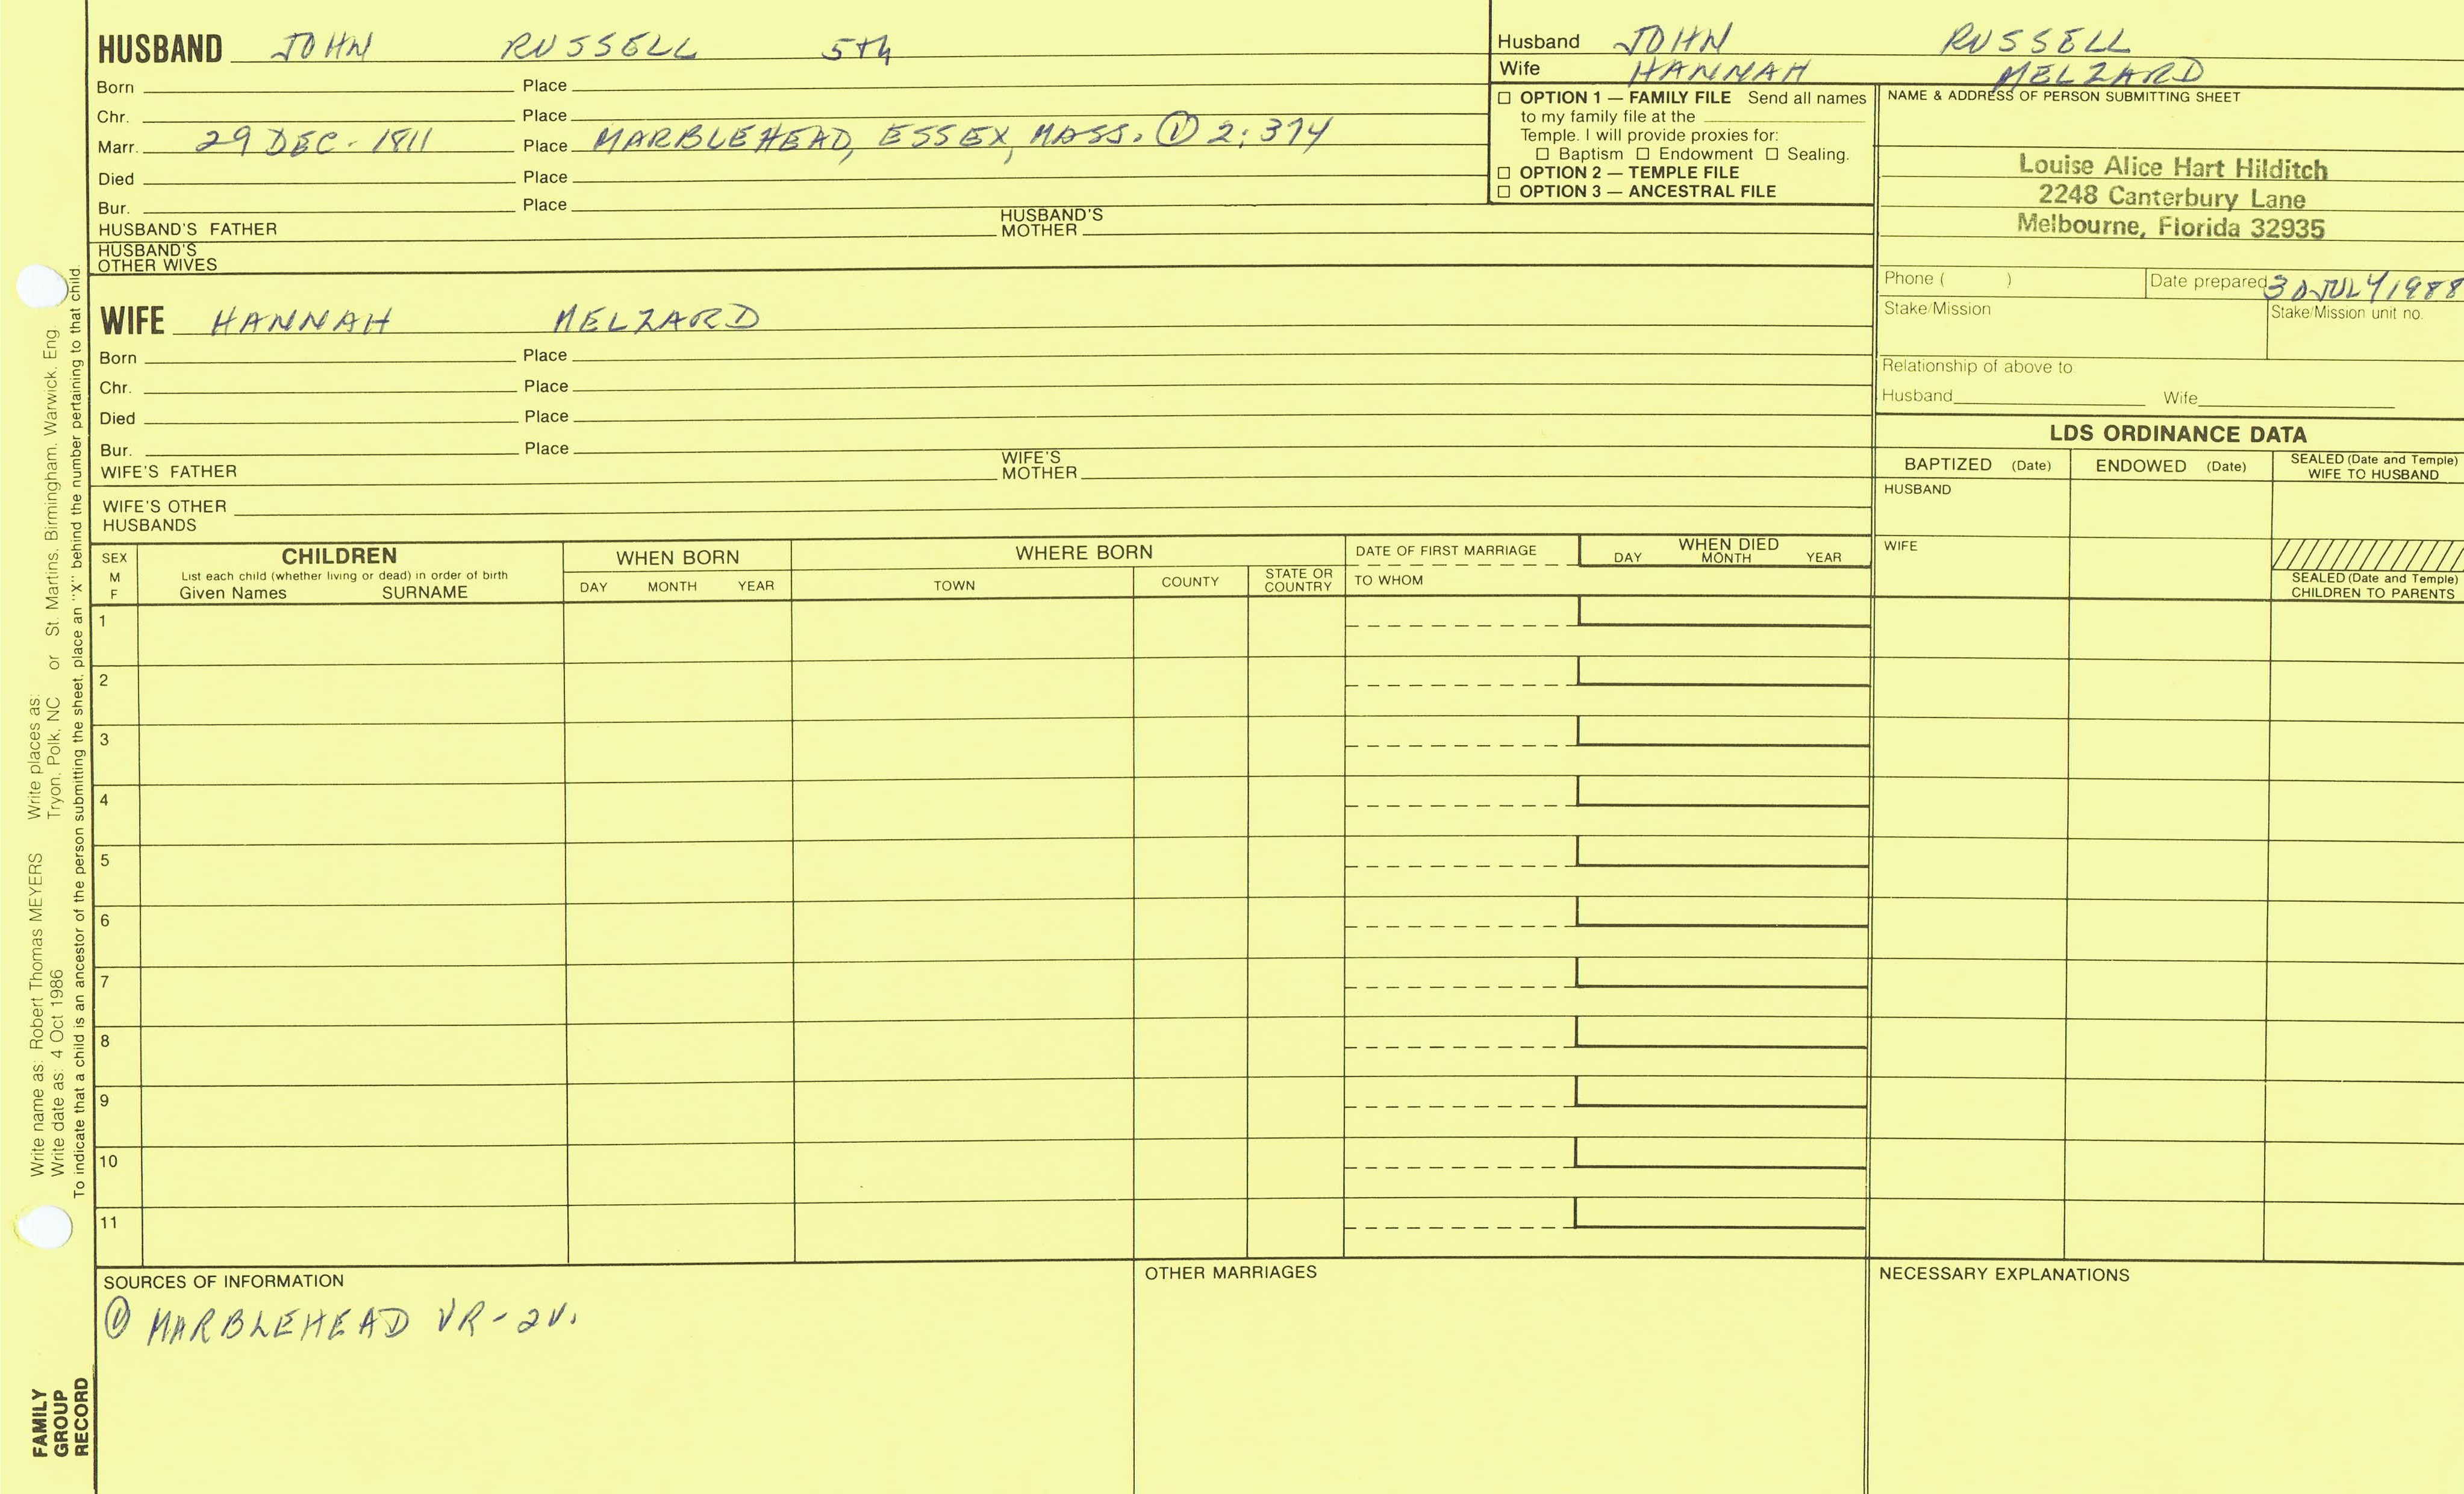 HUSBAND JOHN RUSSELL 5th
Born Place
Chr. Place
Marr. 29 DEC - 1811 Place MARBLEHEAD, ESSEX, MASS. ① 2:374
Died Place
Bur. Place
HUSBAND'S FATHER HUSBAND'S MOTHER
HUSBAND'S
OTHER WIVES
Husband JOHN RUSSELL
Wife HANNAH MELZARD
☐ OPTION 1 — FAMILY FILE Send all names
to my family file at the
Temple. I will provide proxies for:
☐ Baptism ☐ Endowment ☐ Sealing.
☐ OPTION 2 — TEMPLE FILE
☐ OPTION 3 — ANCESTRAL FILE
NAME & ADDRESS OF PERSON SUBMITTING SHEET
Louise Alice Hart Hilditch
2248 Canterbury Lane
Melbourne, Florida 32935
Phone ( ) Date prepared 30 JULY 1988
Stake/Mission Stake/Mission unit no.
Relationship of above to:
Husband Wife
WIFE HANNAH MELZARD
Born Place
Chr. Place
Died Place
Bur. Place
WIFE'S FATHER WIFE'S MOTHER
WIFE'S OTHER
HUSBANDS
LDS ORDINANCE DATA
BAPTIZED (Date) ENDOWED (Date) SEALED (Date and Temple)
WIFE TO HUSBAND
HUSBAND
WIFE
SEALED (Date and Temple)
CHILDREN TO PARENTS
SEX
M
F
CHILDREN
List each child (whether living or dead) in order of birth
Given Names SURNAME
WHEN BORN
DAY MONTH YEAR
WHERE BORN
TOWN COUNTY STATE OR
COUNTRY
DATE OF FIRST MARRIAGE
TO WHOM
WHEN DIED
DAY MONTH YEAR
1
2
3
4
5
6
7
8
9
10
11
SOURCES OF INFORMATION
① MARBLEHEAD VR - 2V.
OTHER MARRIAGES
NECESSARY EXPLANATIONS
Write name as: Robert Thomas MEYERS Write places as:
Write date as: 4 Oct 1986 Tryon, Polk, NC or St. Martins, Birmingham, Warwick, Eng
To indicate that a child is an ancestor of the person submitting the sheet, place an "X" behind the number pertaining to that child.
FAMILY
GROUP
RECORD